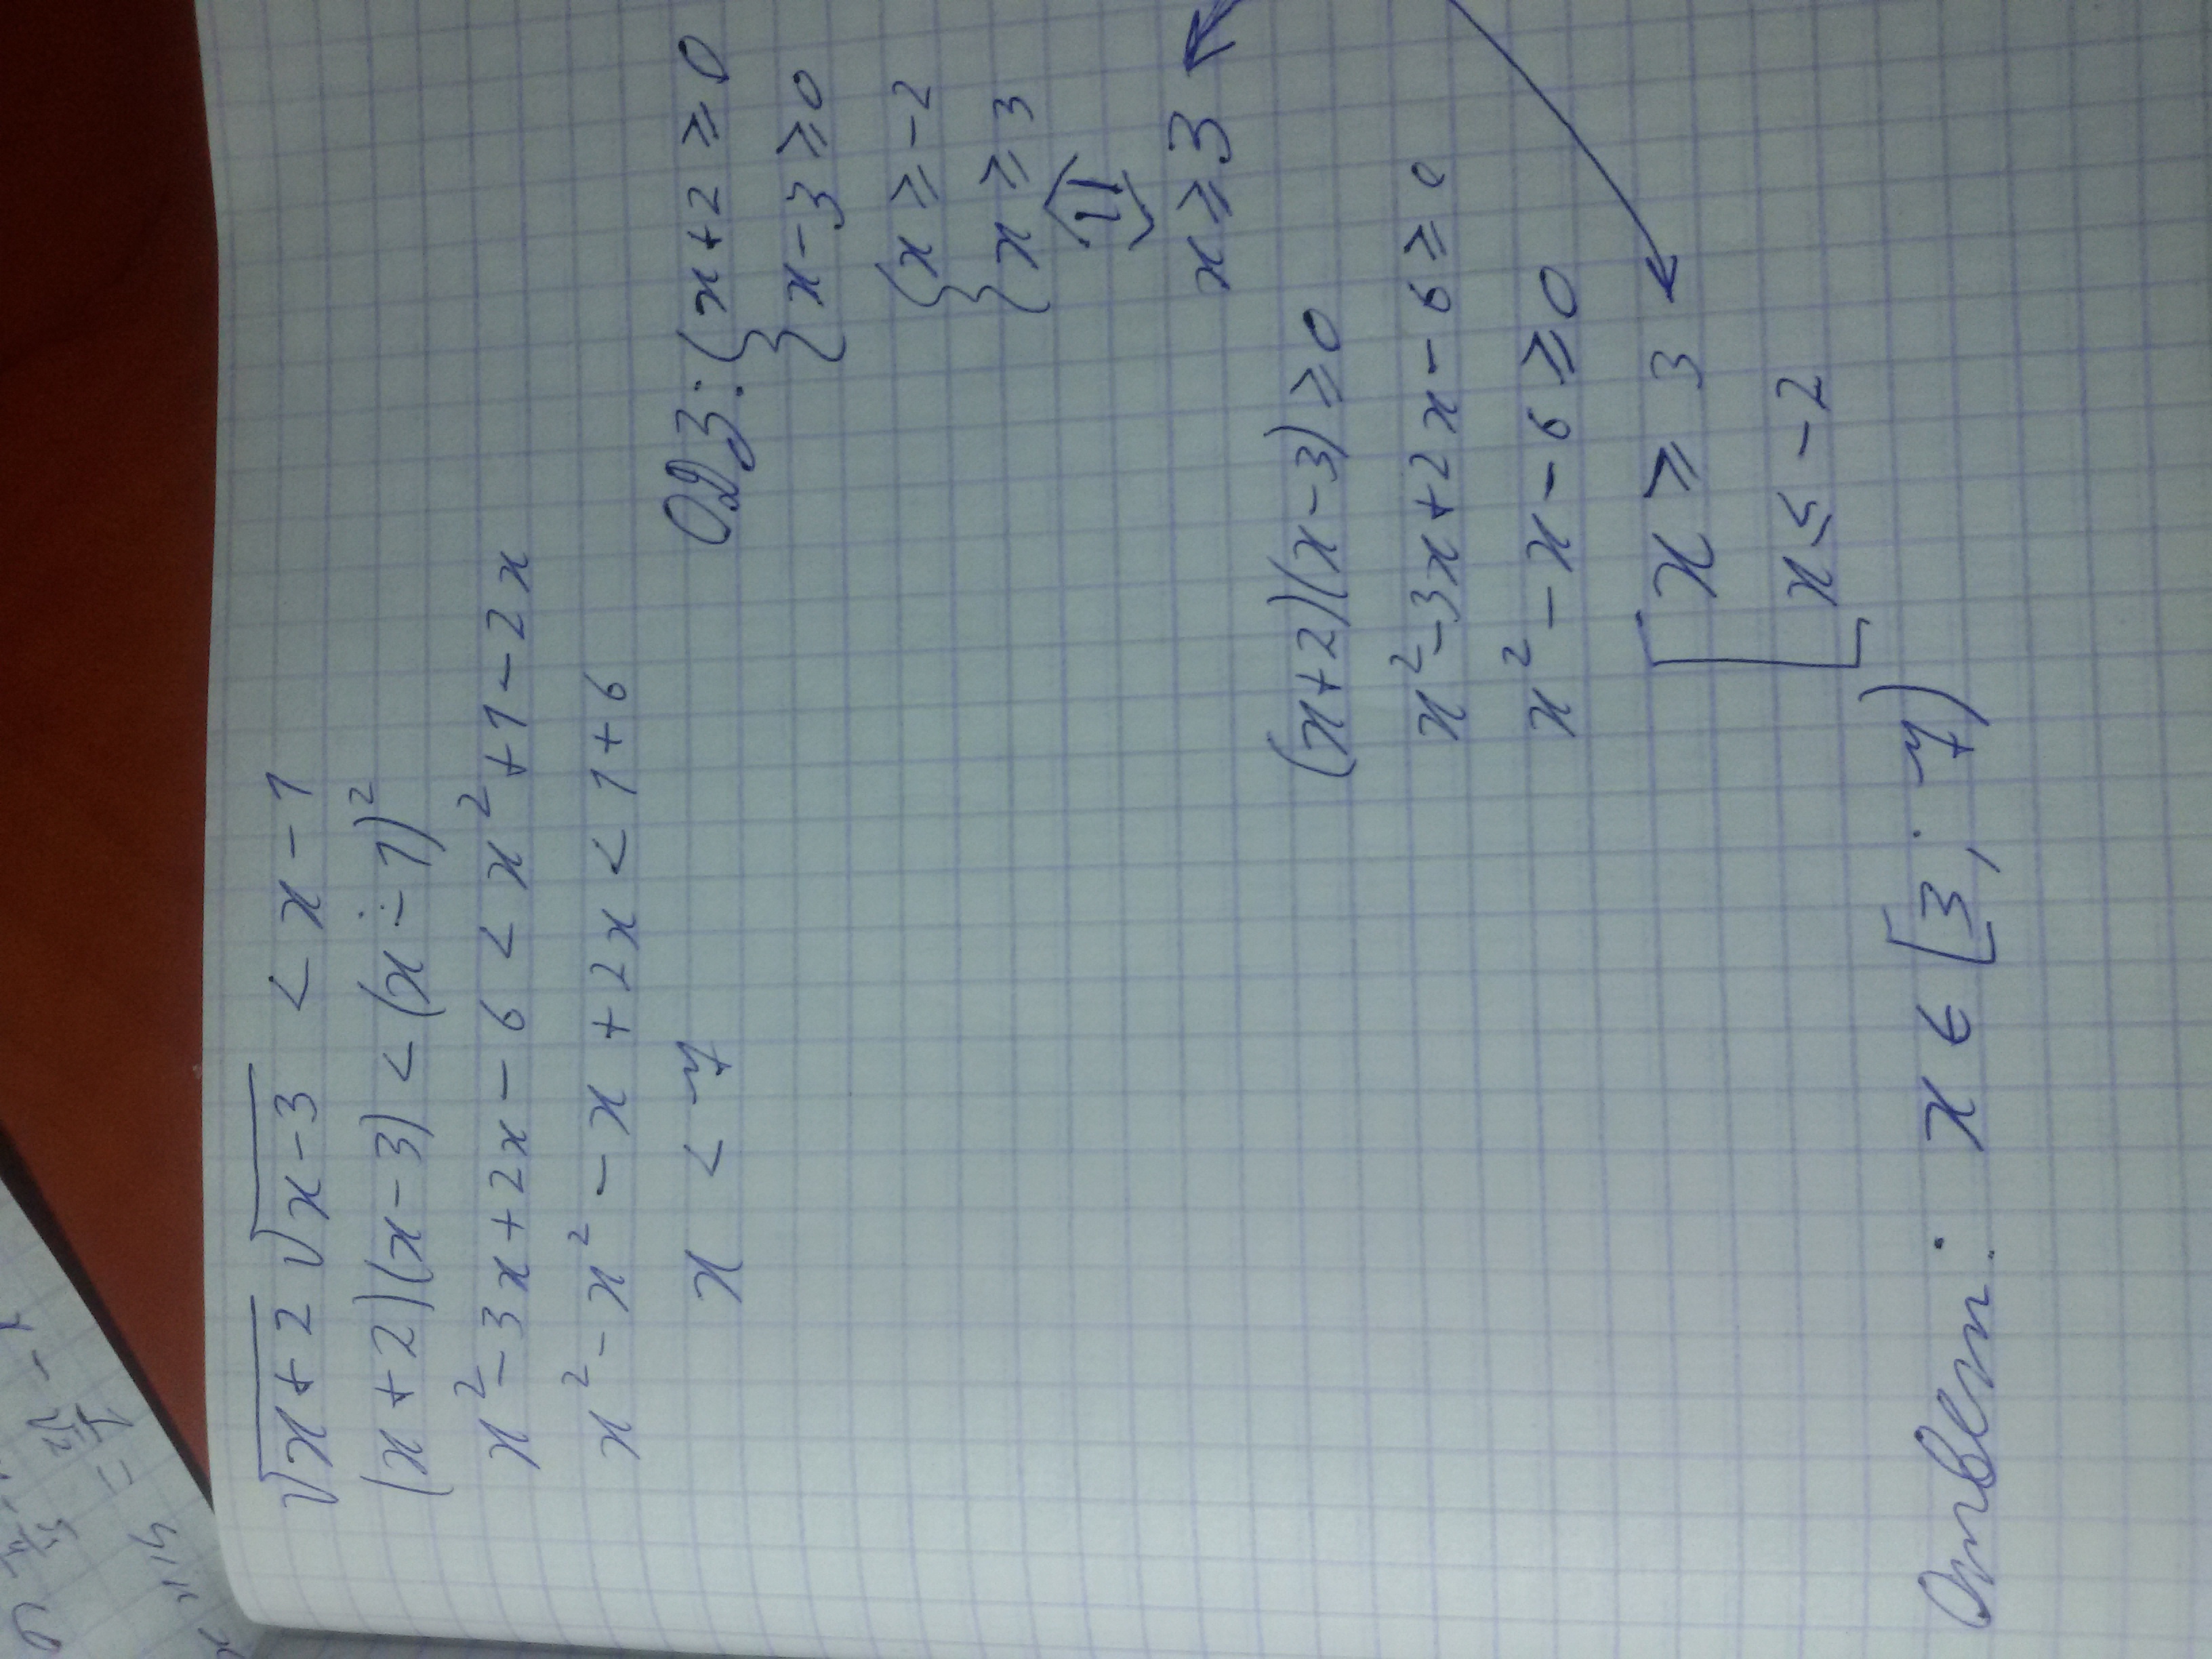 √x+2 √x-3 < x-1
(x+2)(x-3) < (x-1)²
x²-3x+2x-6 < x²+1-2x
x²-x²-x+2x < 1+6
x < 7
ОДЗ: { x+2 ≥ 0
x-3 ≥ 0
{ x ≥ -2
x ≥ 3
⇓
x ≥ 3
(x+2)(x-3) ≥ 0
x²-3x+2x-6 ≥ 0
x²-x-6 ≥ 0
[ x ≥ 3
x ≤ -2
Ответ: x ∈ [3; 7)